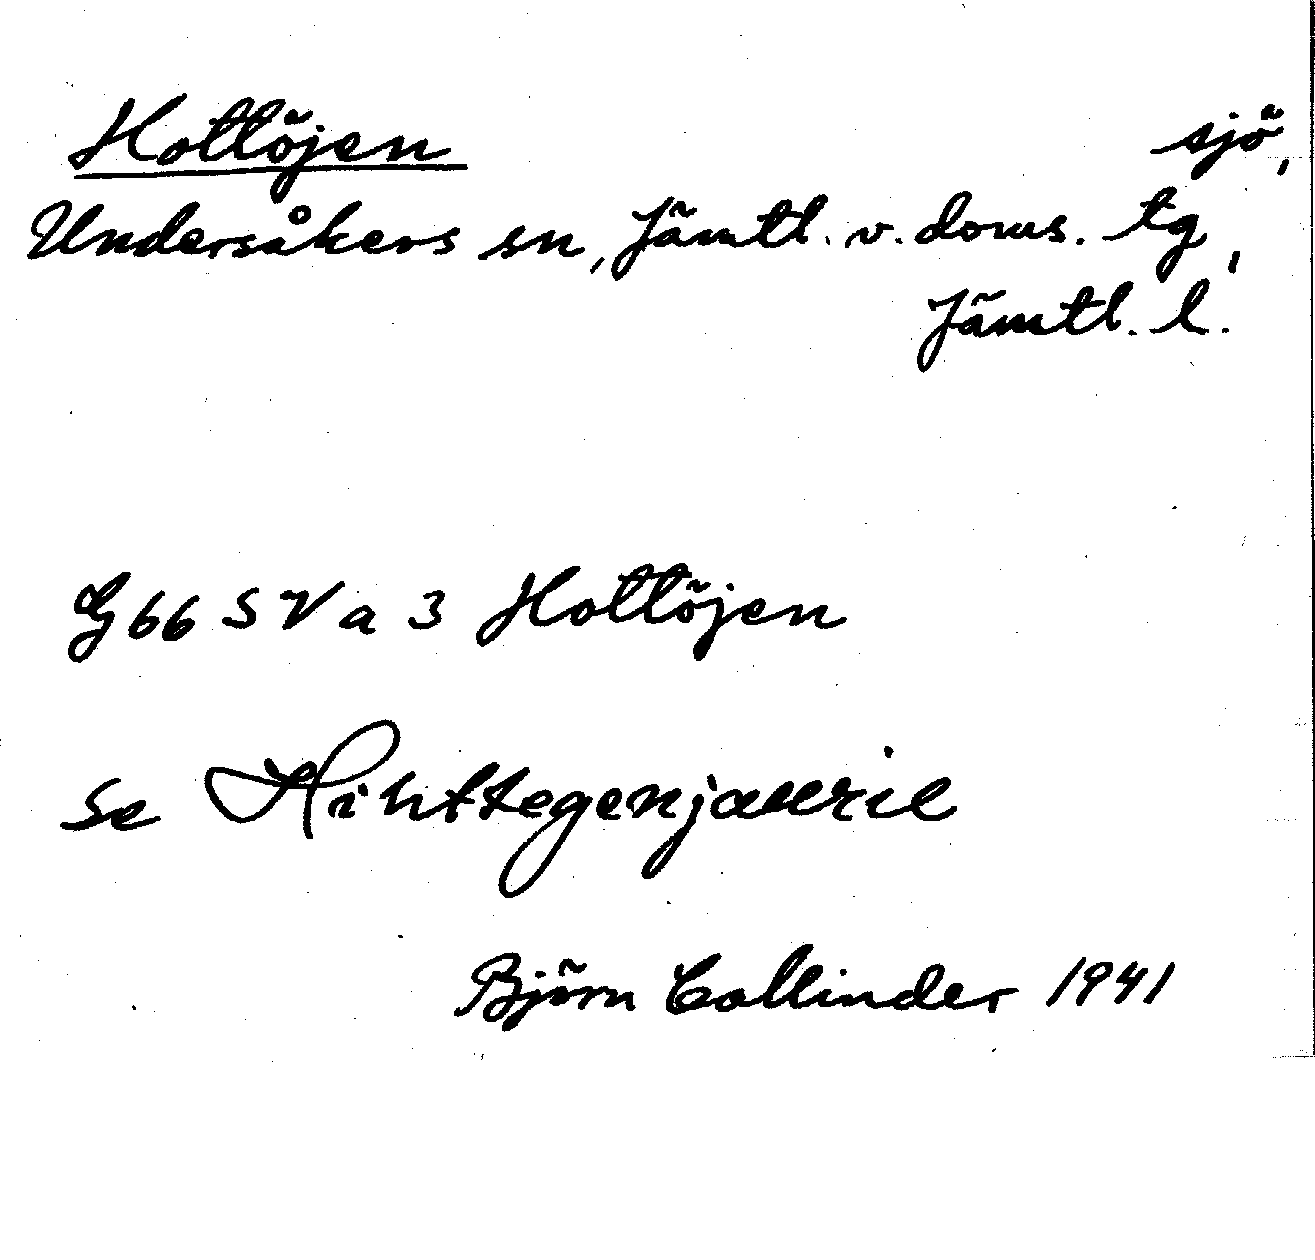 Hottöjen sjö,
Undersåkers sn, Jämtl. v. doms. tg,
Jämtl. l.
G 66 S V a 3 Hottöjen
se Hihttegenjaurie
Björn Collinder 1941